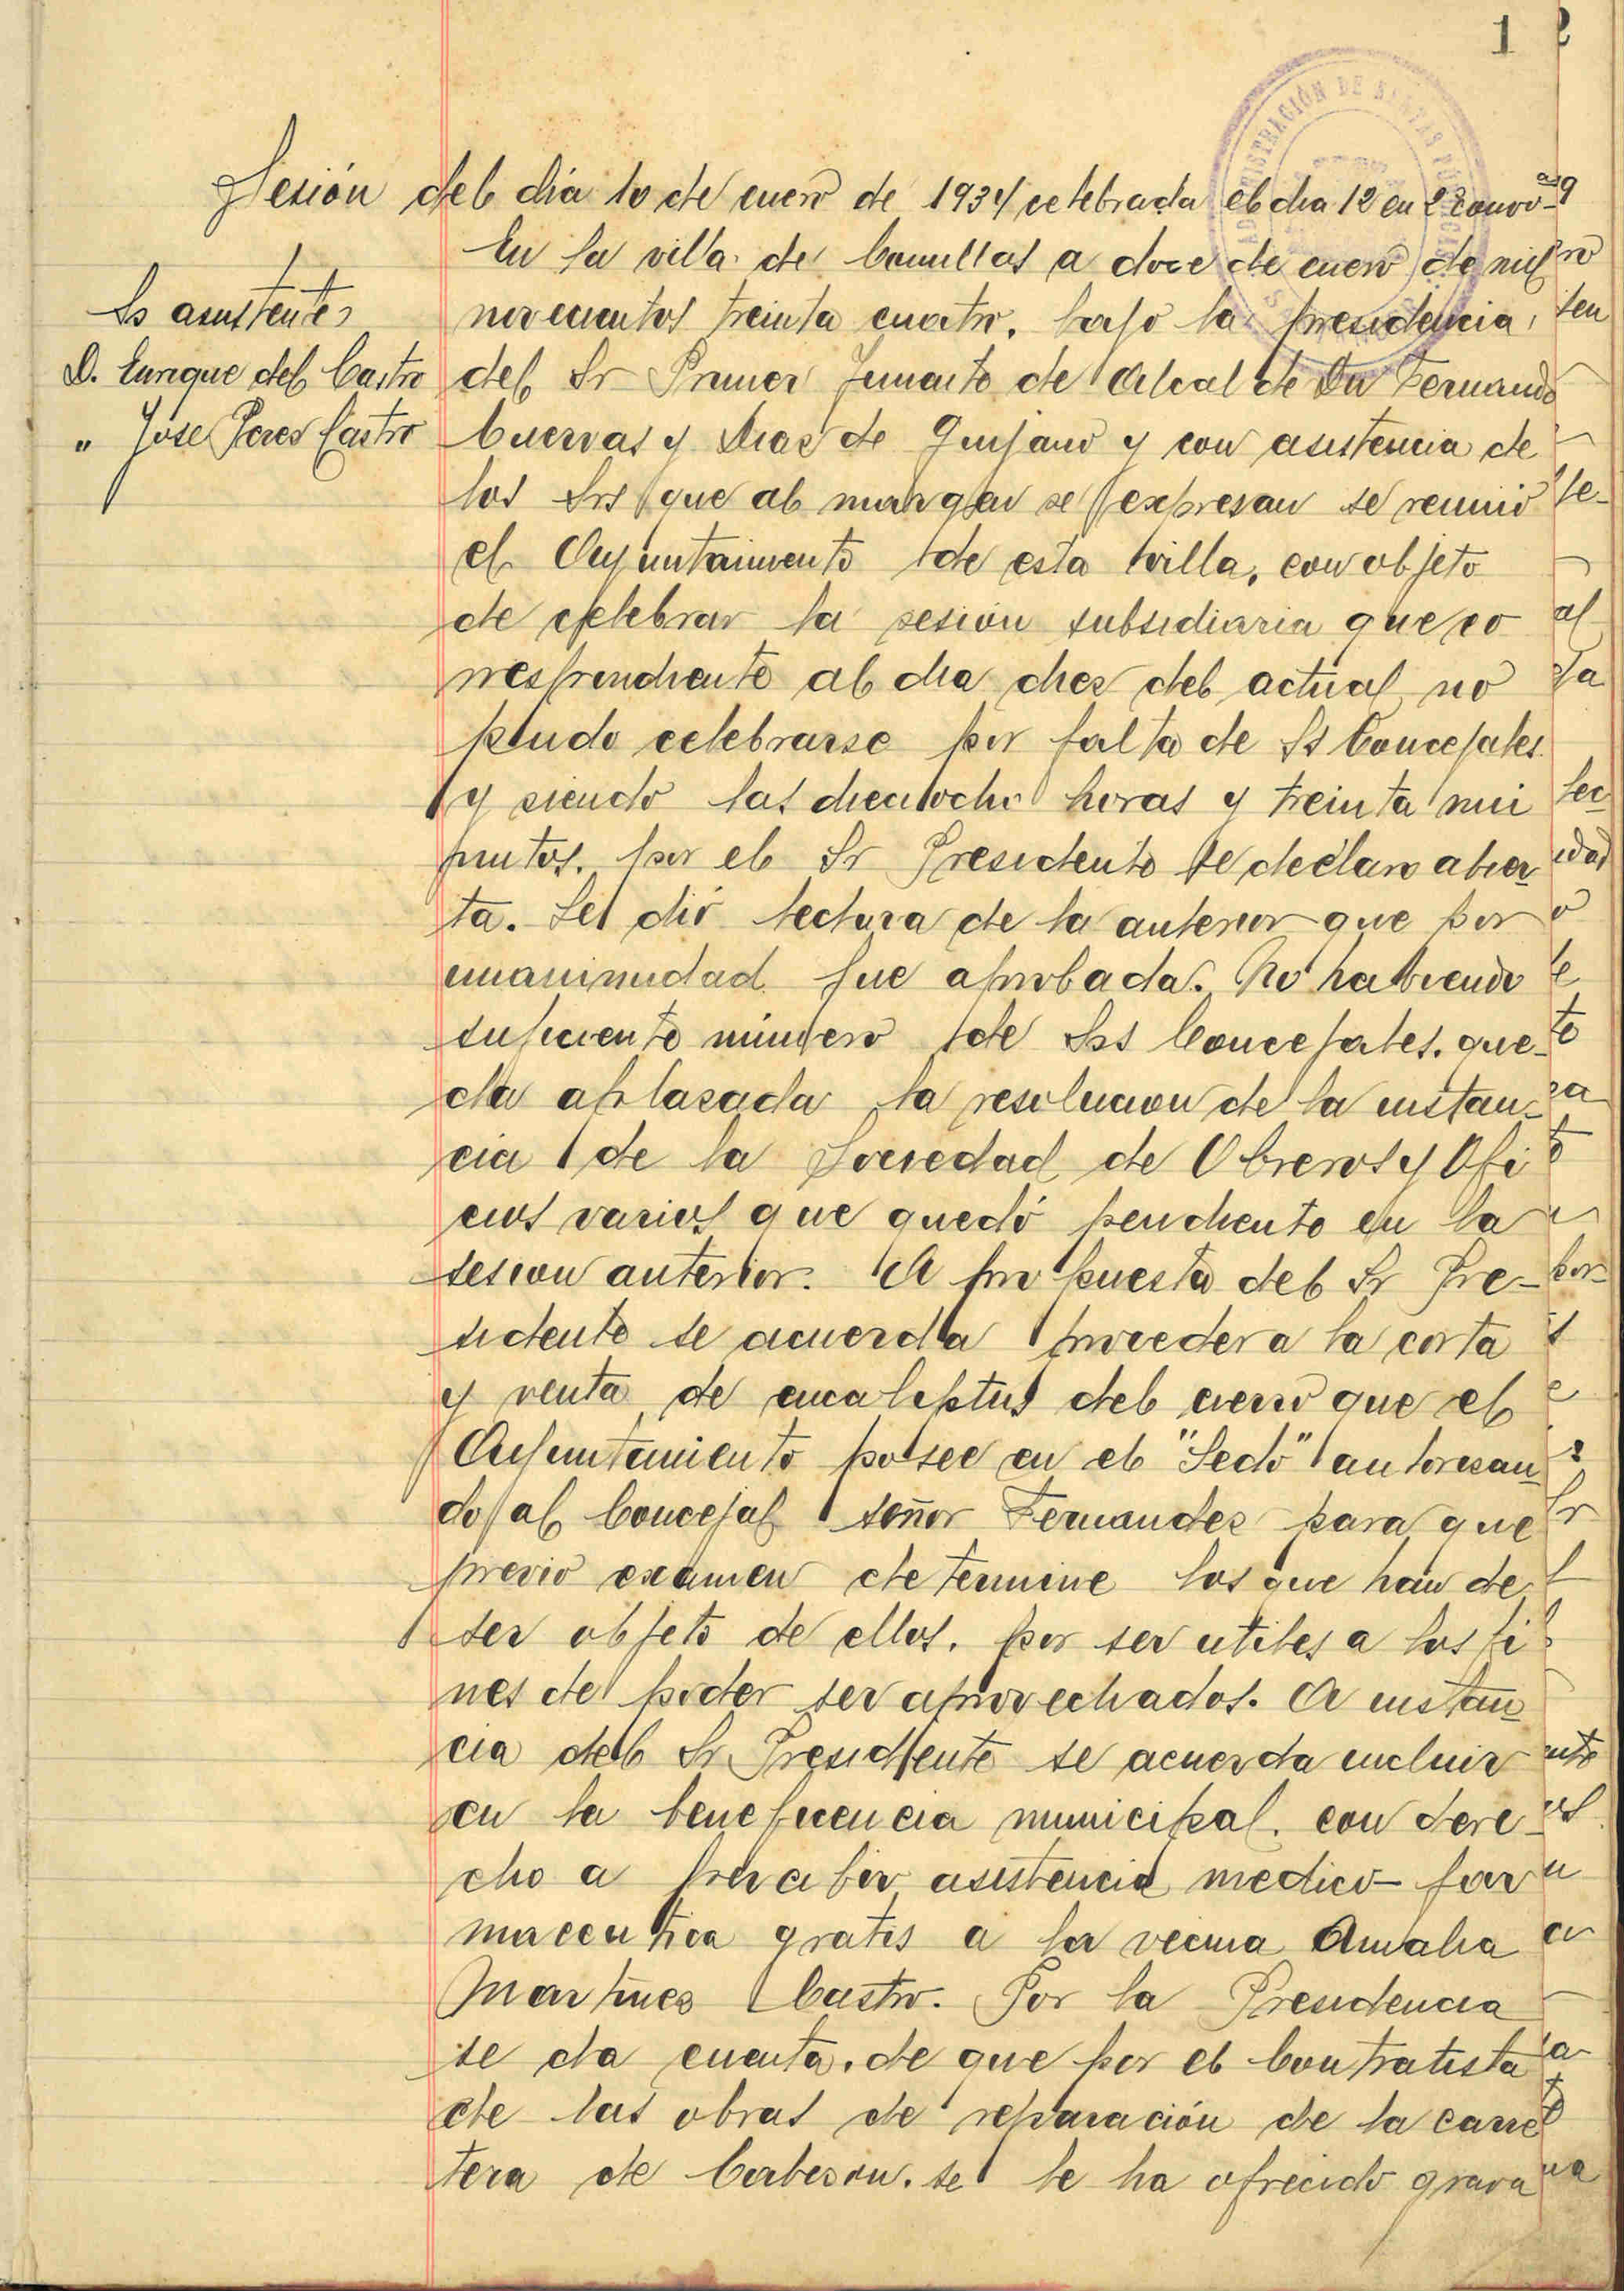 1
Sesión del dia 10 de enero de 1934 celebrada el dia 12 en 2ª convo
En la villa de Comillas a doce de enero de mil
Ss asistentes
D. Enrique del Castro
" Jose Perez Castro
novecientos treinta cuatro, bajo la presidencia,
del Sr Primer Teniente de Alcalde Dn Fernando
Cuervas y Diaz de Quijano y con asistencia de
los Srs que al margen se expresan se reunió
el Ayuntaimento de esta villa, con objeto
de celebrar la sesión subsidiaria que co
rrespondiente al dia diez del actual no
pudo celebrarse por falta de Ss Concejales.
y siendo las dieciocho horas y treinta mi
nutos. por el Sr Presidente se declaro abier-
ta. Se dió lectura de la anterior que por
unanimidad fue aprobada. No habiendo
suficiente número de Srs Concejales. que-
da aplazada la resolucion de la instan-
cia de la Sociedad de Obreros y Ofi
cios varios que quedó pendiente en la
sesion anterior. A propuesta del Sr Pre-
sidente se acuerda proceder a la corta
y venta de eucaliptus del cierro que el
Ayuntamiento posee en el "Sedo" autorizan-
do al Concejal señor Fernandez para que
previo examen determine los que han de
ser objeto de ellos. por ser utiles a los fi
nes de poder ser aprovechados. A instan-
cia del Sr Presidente se acuerda incluir
en la beneficencia municipal. con dere-
cho a percibir asistencia medico-far
maceutica gratis a la vecina Amalia
Martinez Castro. Por la Presidencia
se da cuenta. de que por el Contratista
de las obras de reparación de la carre
tera de Cabezon. se le ha ofrecido grava